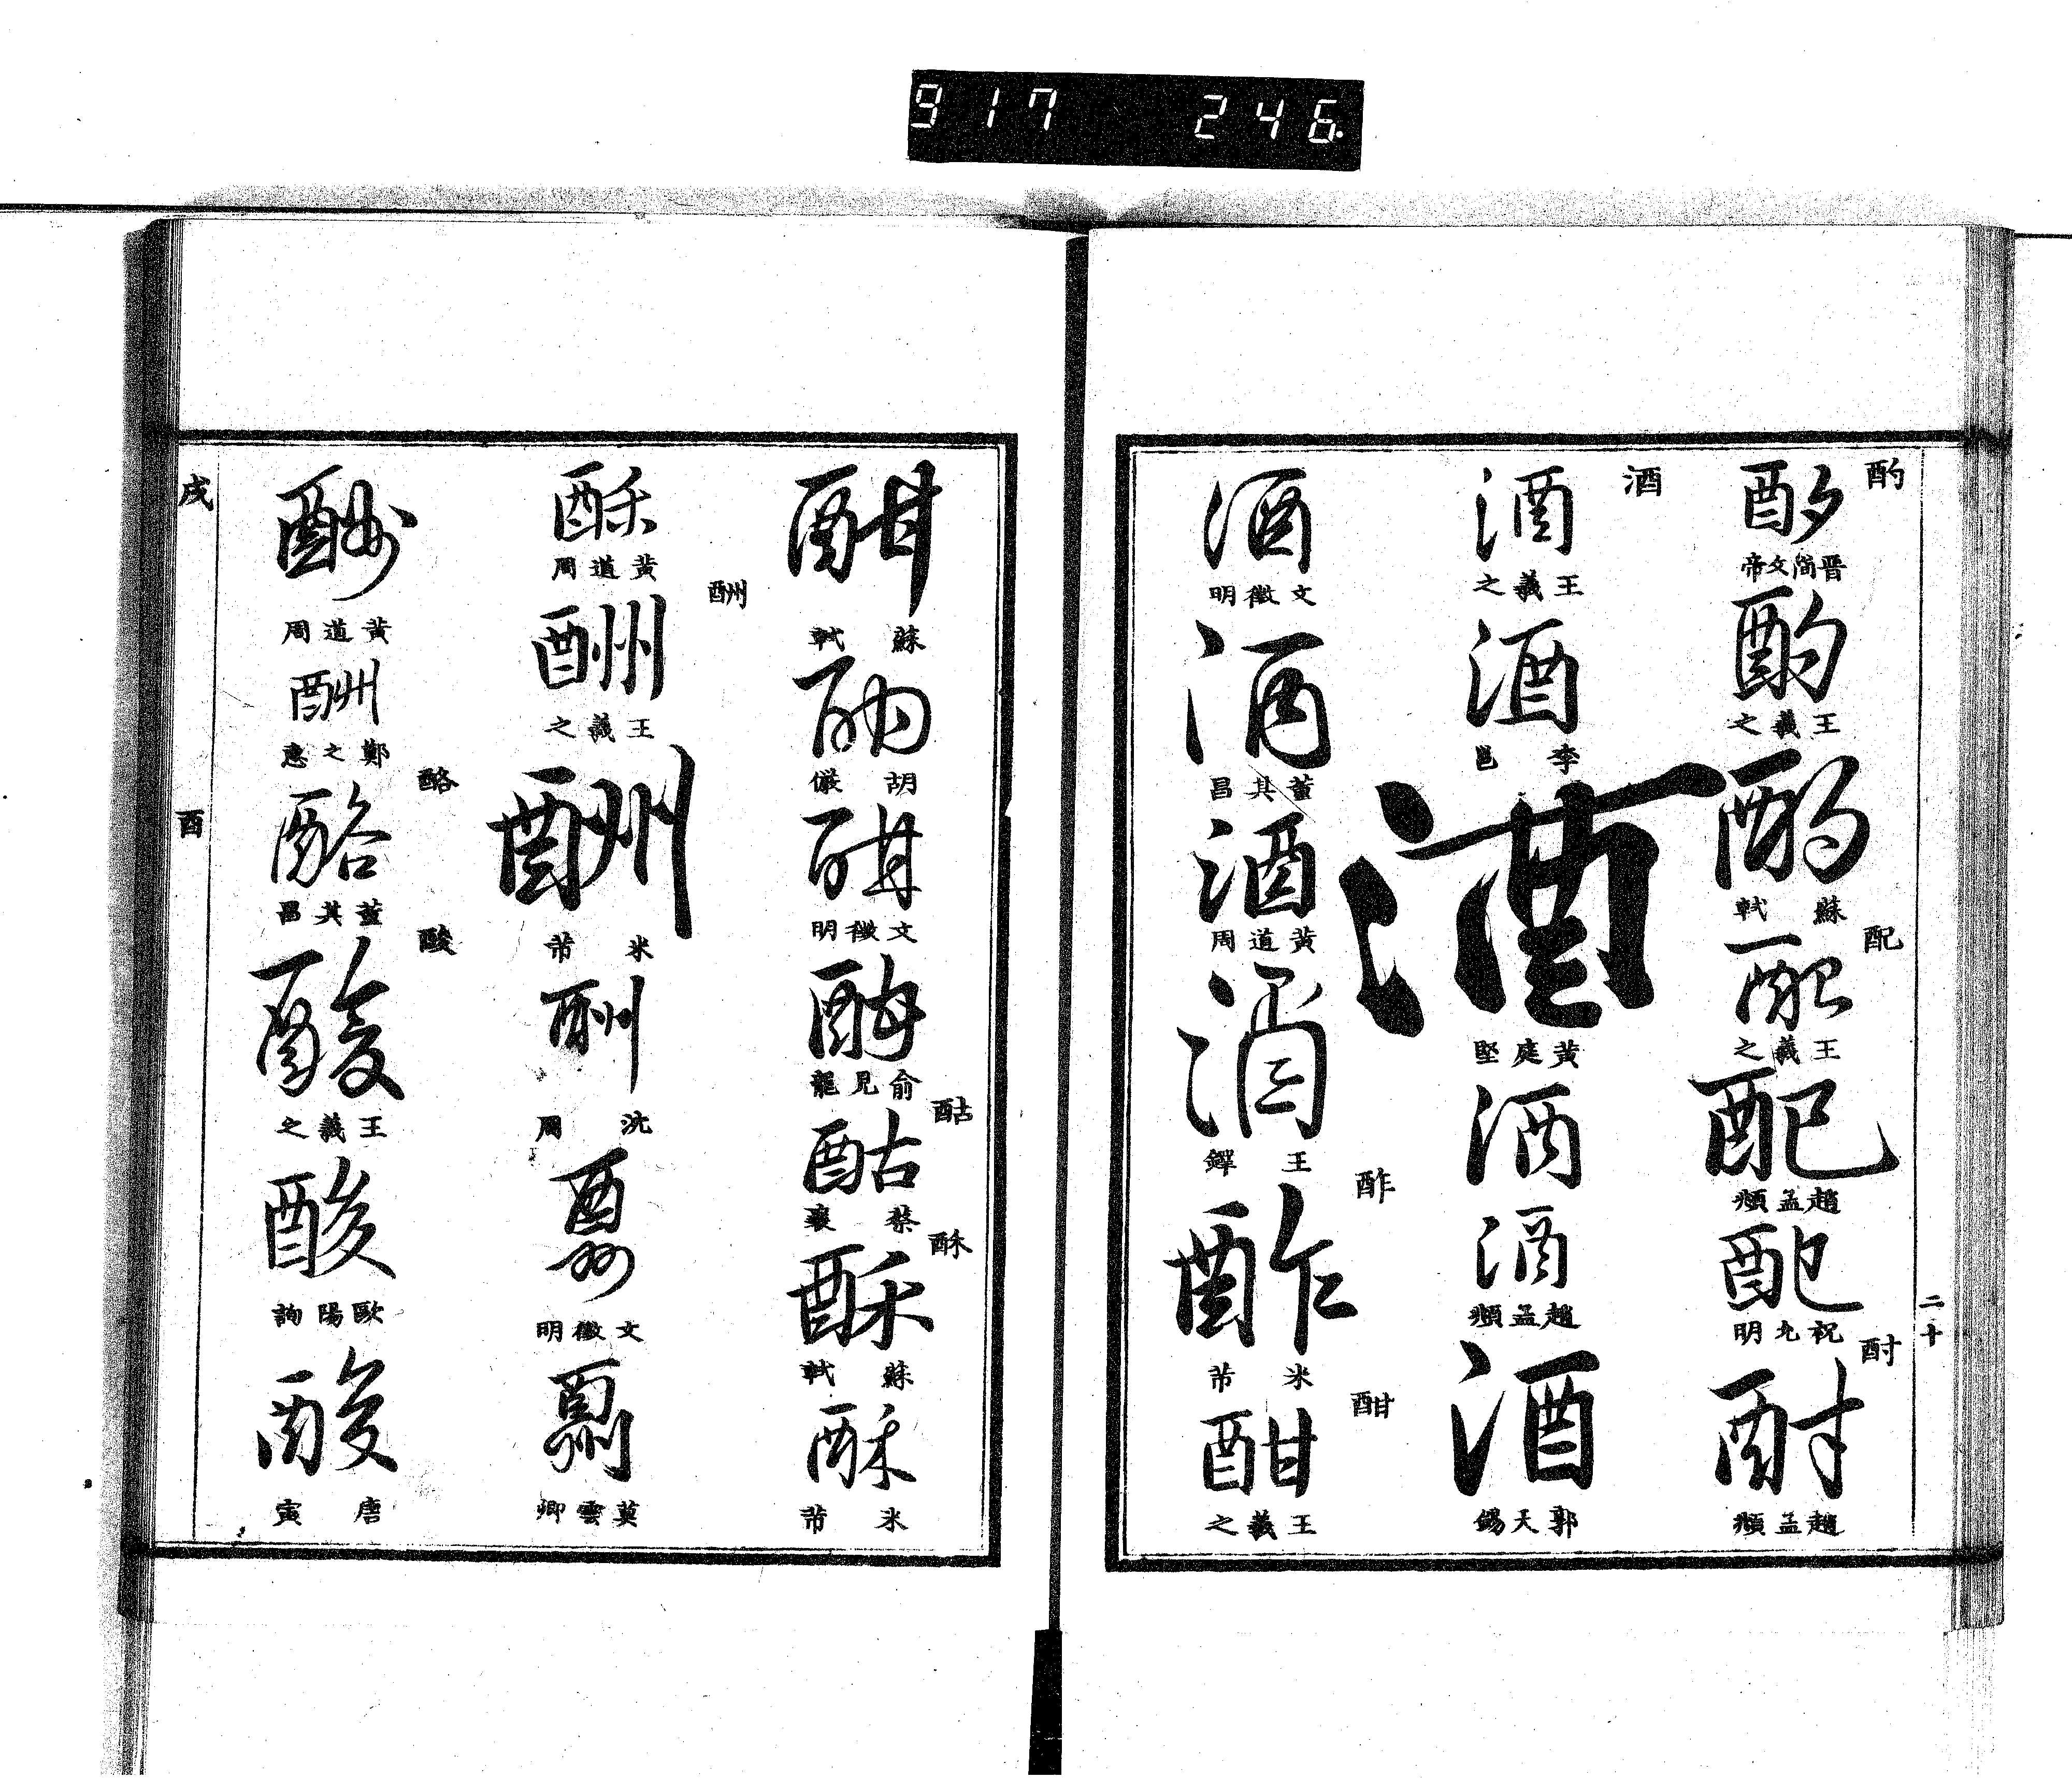 917 246
二十
酌
酌
晋簡文帝
酌
王羲之
酌
蘇軾
配
配
王羲之
配
趙孟頫
配
祝允明
酎
酎
趙孟頫
酒
酒
王羲之
酒
李邕
酒
黄庭堅
酒
酒
趙孟頫
酒
郭天錫
酒
文徵明
酒
董其昌
酒
黄道周
酒
王鐸
酢
酢
米芾
酣
酣
王羲之
酣
蘇軾
酣
胡儼
酣
文徵明
酣
俞見龍
酤
酤
蔡襄
酥
酥
蘇軾
酥
米芾
酥
黄道周
酬
酬
王羲之
酬
米芾
酬
沈周
酬
文徵明
酬
莫雲卿
酬
黄道周
酬
鄭之惠
酪
酪
董其昌
酸
酸
王羲之
酸
歐陽詢
酸
唐寅
戌
酉